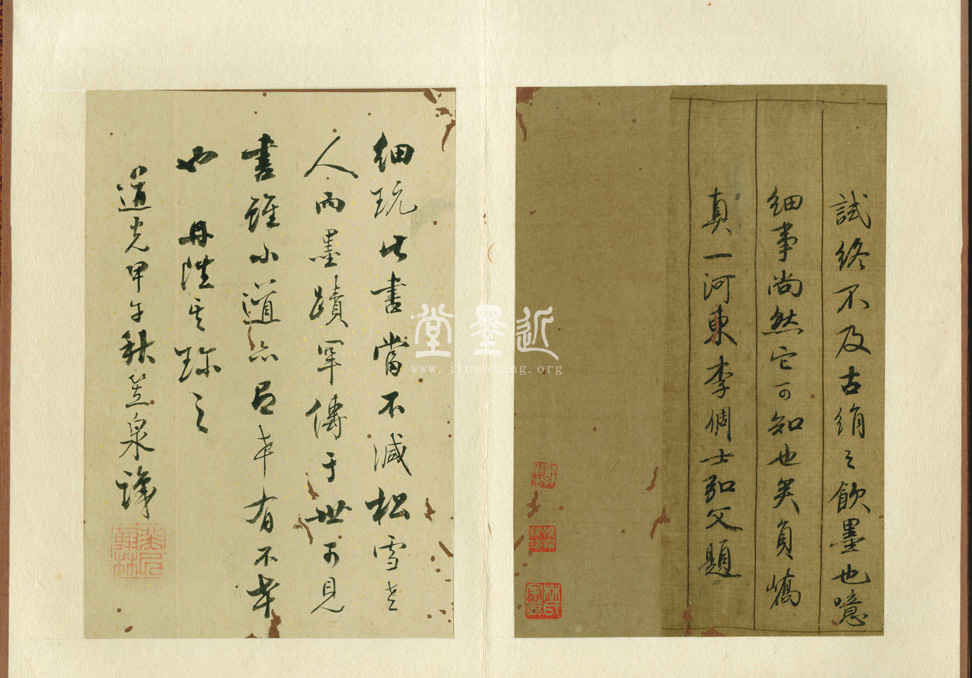 試終不及古絹之飲墨也噫
細事尚然它可知也矣貞嶠
真一河東李倜士弘父題
細玩此書當不減松雪老
人而墨蹟罕傳于世可見
書雖小道亦有幸有不幸
也 丹陛其珍之
道光甲午秋荷泉識
近墨堂
www.jinmotang.org